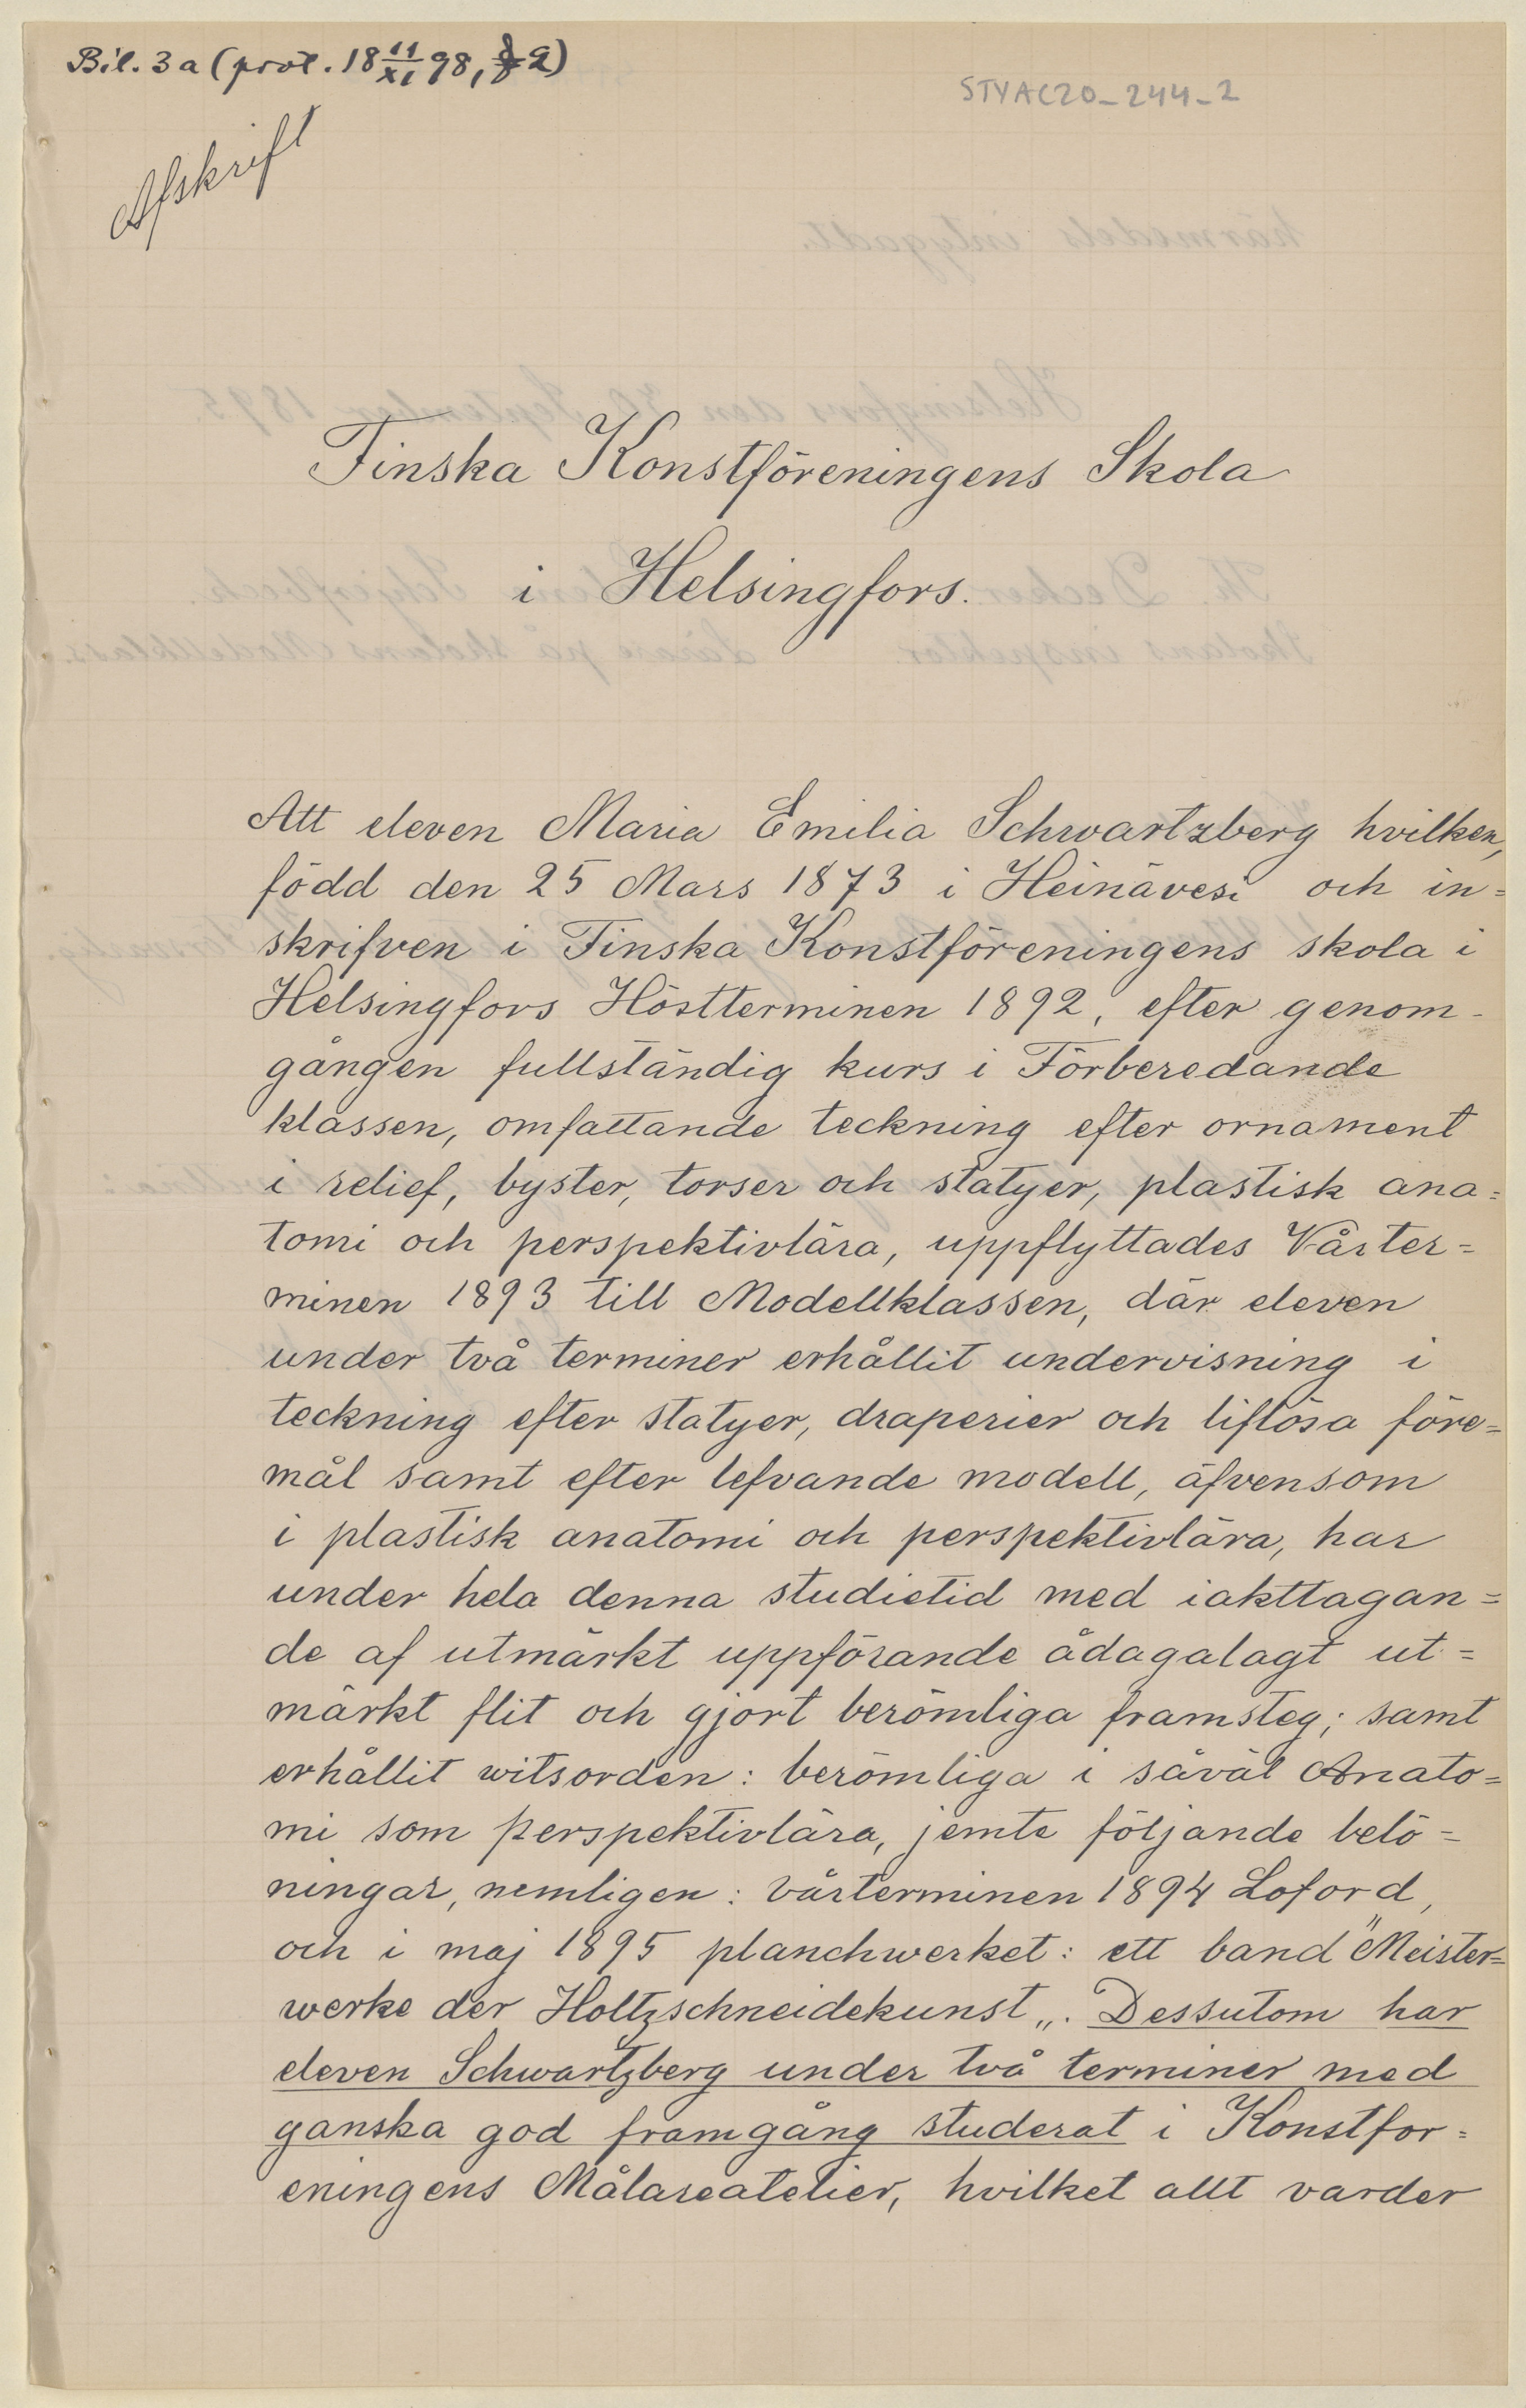 Bil. 3a (prot. 18 11/XI 98, § 2)
STYAC20_244_2
Afskrift
Finska Konstföreningens Skola
i Helsingfors.
Att eleven Maria Emilia Schwartzberg hvilken,
född den 25 Mars 1873 i Heinävesi och in=
skrifven i Finska Konstföreningens skola i
Helsingfors Höstterminen 1892, efter genom-
gången fullständig kurs i Förberedande
klassen, omfattande teckning efter ornament
i relief, byster, torser och statyer, plastisk ana=
tomi och perspektivlära, uppflyttades Vårter=
minen 1893 till Modellklassen, där eleven
under två terminer erhållit undervisning i
teckning efter statyer, draperier och liflösa före=
mål samt efter lefvande modell, äfvensom
i plastisk anatomi och perspektivlära, har
under hela denna studietid med iakttagan=
de af utmärkt uppförande ådagalagt ut=
märkt flit och gjort berömliga framsteg; samt
erhållit witsorden: berömliga i såväl Anato=
mi som perspektivlära, jemte följande belö=
ningar, nemligen: vårterminen 1894 Loford,
och i maj 1895 planchwerket: ett band "Meister=
werke der Holtzschneidekunst„. Dessutom har
eleven Schwartzberg under två terminer med
ganska god framgång studerat i Konstfor=
eningens Målareatelier, hvilket allt varder